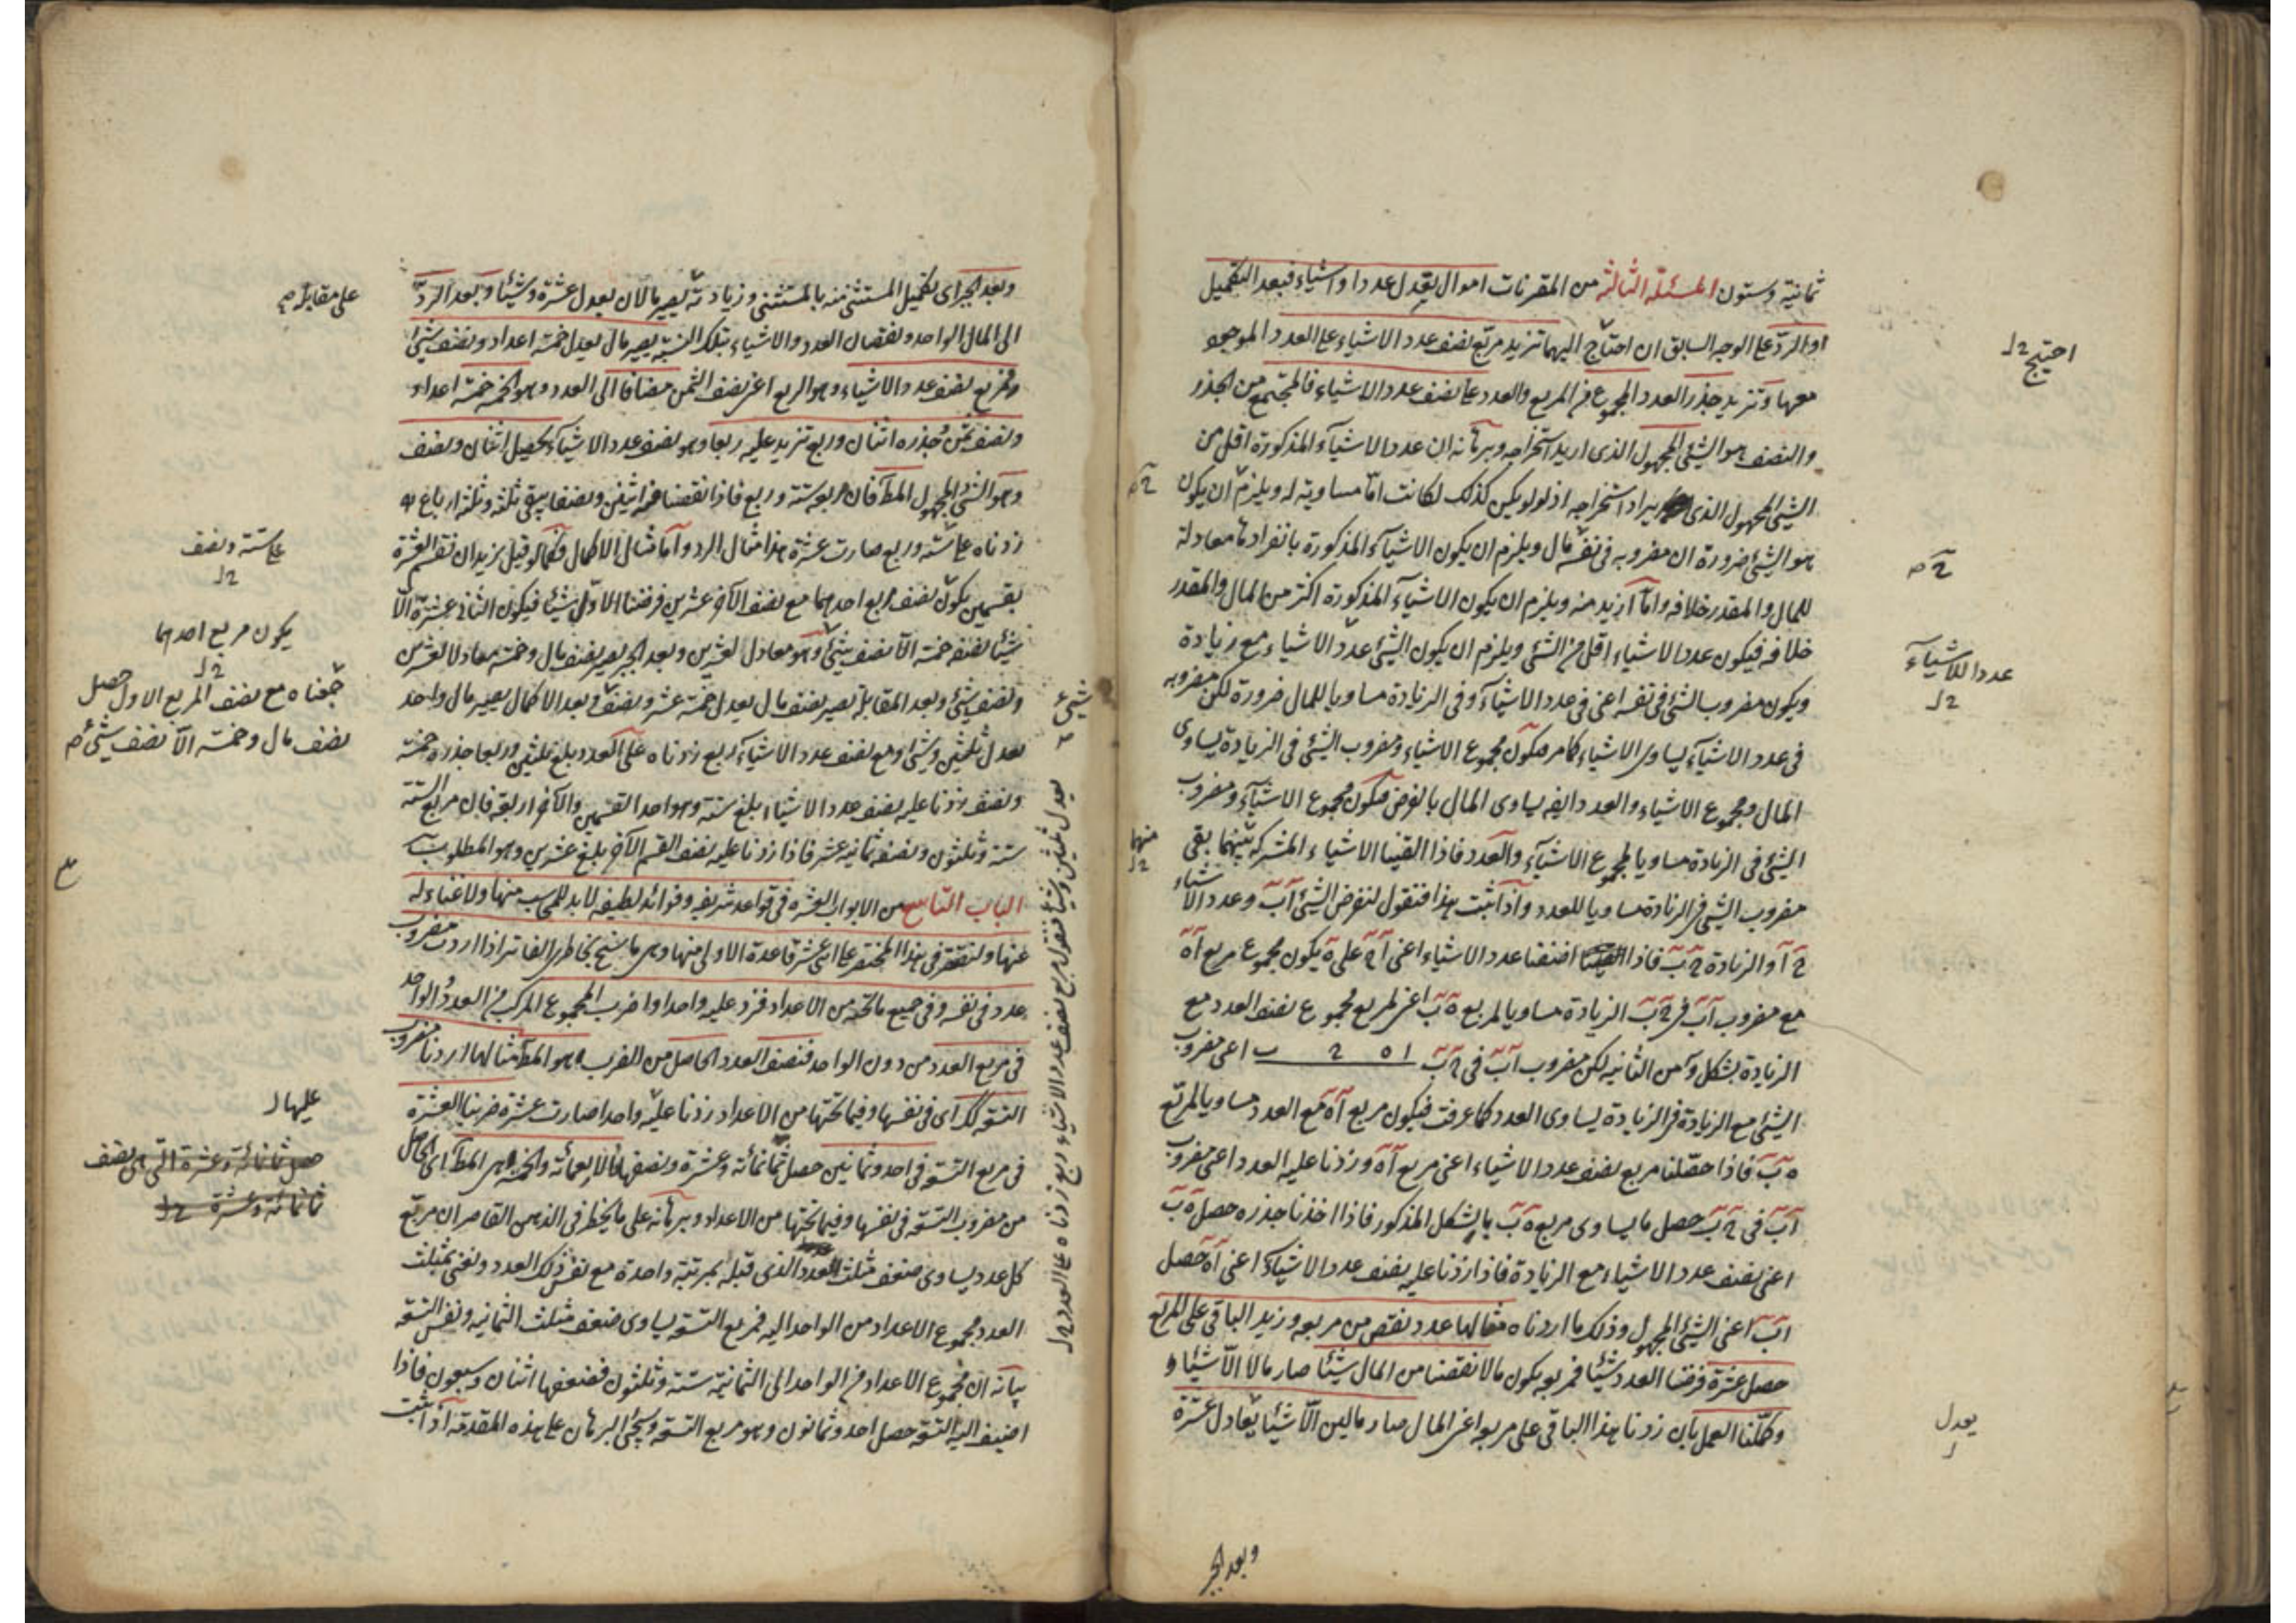 ثمانية وستون المسئلة الثالثة من المقترنات اموال تعدل عددا واشياء فبعد التكميل
او الرد على الوجه السابق ان احتاج اليهما تزيد مربع نصف عدد الاشياء على العدد الموجود
معها وتزيد جذر العدد المجموع من المربع والعدد على نصف عدد الاشياء فالمجتمع من الجذر
والنصف هو الشئ المجهول الذى اريد استخراجه وبرهانه ان عدد الاشياء المذكورة اقل من
الشئ المجهول الذى يراد استخراجه اذ لو لم يكن كذلك لكانت اما مساوية له ويلزم ان يكون
هو الشئ ضرورة ان مضروبه فى نفسه مال ويلزم ان يكون الاشياء المذكورة بانفرادها معادلة
للمال والمقدر خلافه واما ازيد منه ويلزم ان يكون الاشياء المذكورة اكثر من المال والمقدر
خلافه فيكون عدد الاشياء اقل من الشئ ويلزم ان يكون الشئ عدد الاشياء مع زيادة
ويكون مضروب الشئ فى نفسه اعنى فى عدد الاشياء وفى الزيادة مساويا للمال ضرورة لكن مضروبه
فى عدد الاشياء يساوى الاشياء كما مر فيكون مجموع الاشياء ومضروب الشئ فى الزيادة يساوى
المال ومجموع الاشياء والعدد ايضا يساوى المال بالفرض فيكون مجموع الاشياء ومضروب
الشئ فى الزيادة مساويا لمجموع الاشياء والعدد فاذا القينا الاشياء المشتركة بينهما بقى
مضروب الشئ فى الزيادة مساويا للعدد واذا ثبت هذا فنقول لنفرض الشئ اب وعدد الاشياء
ح ا والزيادة ح ب فاذا اضفنا عدد الاشياء اعنى ا ح على ه يكون مجموع مربع اه
مع مضروب اب فى ح ب الزيادة مساويا لمربع ه ب اعنى لمربع مجموع نصف العدد مع
الزيادة بشكل و من الثانية لكن مضروب اب فى ح ب ا ه ح ب اعنى مضروب
الشئ مع الزيادة فى الزيادة يساوى العدد كما عرفت فيكون مربع اه مع العدد مساويا لمربع
ه ب فاذا حصلنا مربع نصف عدد الاشياء اعنى مربع اه وزدنا عليه العدد اعنى مضروب
اب فى ح ب حصل ما يساوى مربع ه ب بالشكل المذكور فاذا اخذنا جذره حصل ه ب
اعنى نصف عدد الاشياء مع الزيادة فاذا زدنا عليه نصف عدد الاشياء اعنى اه حصل
اب اعنى الشئ المجهول وذلك ما اردناه مثالها عدد نقص من مربعه وزيد الباقى على المربع
حصل عشرة فرضنا العدد شيئا فمربعه يكون مالا نقصنا من المال شيئا صار مالا الا شيئا و
وكملنا العمل بان زدنا هذا الباقى على مربعه اعنى المال صار مالين الا شيئا يعادل عشرة
وبعد الجبر
احتيج
عدد اللاشياء
منها
يعدل
وبعد الجبر اى تكميل المستثنى منه بالمستثنى وزيادته يصير مالان يعدل عشرة وشيئا وبعد الرد
الى المال الواحد ونقصان العدد والاشياء بتلك النسبة يصير مال يعدل خمسة اعداد ونصف شئ
فمربع نصف عدد الاشياء وهو الربع اعنى نصف الثمن مضافا الى العدد وهو الخمسة خمسة اعداد
ونصف ثمن وجذره اثنان وربع تزيد عليه ربعا وهو نصف عدد الاشياء يحصل اثنان ونصف
وهو الشئ المجهول المط فان مربعه ستة وربع فاذا نقصنا منه اثنين ونصفا يبقى ثلثة وثلثة ارباع
زدناه على ستة وربع صارت عشرة هذا مثال الرد واما مثال الاكمال فكما لو قيل نريد ان نقسم العشرة
بقسمين يكون نصف مربع احدهما مع نصف الآخر عشرين فرضنا الاول شيئا فيكون الثانى عشرة الا
شيئا نصفه خمسة الا نصف شئ وهو معادل لعشرين وبعد الجبر يصير نصف مال وخمسة معادلا لعشرين
ونصف شئ وبعد المقابلة يصير نصف مال يعدل خمسة عشر ونصف وبعد الاكمال يصير مال واحد
يعدل ثلثين وشيئا ومربع نصف عدد الاشياء ربع زدناه على العدد بلغ ثلثين وربعا جذره خمسة
ونصف زدنا عليه نصف عدد الاشياء بلغ ستة وهو احد القسمين والآخر اربعة فان مربع الستة
ستة وثلثون ونصفه ثمانية عشر فاذا زدنا عليه نصف القسم الآخر بلغ عشرين وهو المطلوب
الباب التاسع من الابواب العشرة فى قواعد شريفة وفوائد لطيفة لا بد للمحاسب منها ولا غناء له
عنها ولنقتصر فى هذا المختصر على اثنى عشر قاعدة الاولى منها وهى ما سنح بخاطرى الفاتر اذا اردت مضروب
عدد فى نفسه وفى جميع ما تحته من الاعداد فزد عليه واحدا واضرب المجموع المركب من العدد والواحد
فى مربع العدد من دون الواحد فنصف العدد الحاصل من الضرب هو المط مثالها اردنا مضروب
التسعة كك اى فى نفسها وفيما تحتها من الاعداد زدنا عليه واحدا صارت عشرة ضربنا العشرة
فى مربع التسعة فى احد وثمانين حصل ثمانمائة وعشرة ونصفها الاربعمائة والخمسة هى المط اى الحاصل
من مضروب التسعة فى نفسها وفيما تحتها من الاعداد وبرهانه على ما يخطر فى الذهن القاصر ان مربع
كل عدد يساوى ضعف مثلث العدد الذى قبله بمرتبة واحدة مع نفس ذلك العدد ونعنى بمثلث
العدد مجموع الاعداد من الواحد اليه فمربع التسعة يساوى ضعف مثلث الثمانية ونفس التسعة
بيانه ان مجموع الاعداد من الواحد الى الثمانية ستة وثلثون فضعفها اثنان وسبعون فاذا
اضيف اليه التسعة حصل احد وثمانون وهو مربع التسعة وسيجئ البرهان على هذه المقدمة اذا ثبت
على ستة ونصف
يكون مربع احدهما
جمعناه مع نصف المربع الاول حصل
نصف مال وخمسة الا نصف شئ
عليها
حصل ثمانمائة وعشرة التى هى نصف
ثمانمائة وعشرة
شئ
يعدل ثلثين وشيئا فنقول مربع نصف عدد الاشياء ربع زدناه على العدد